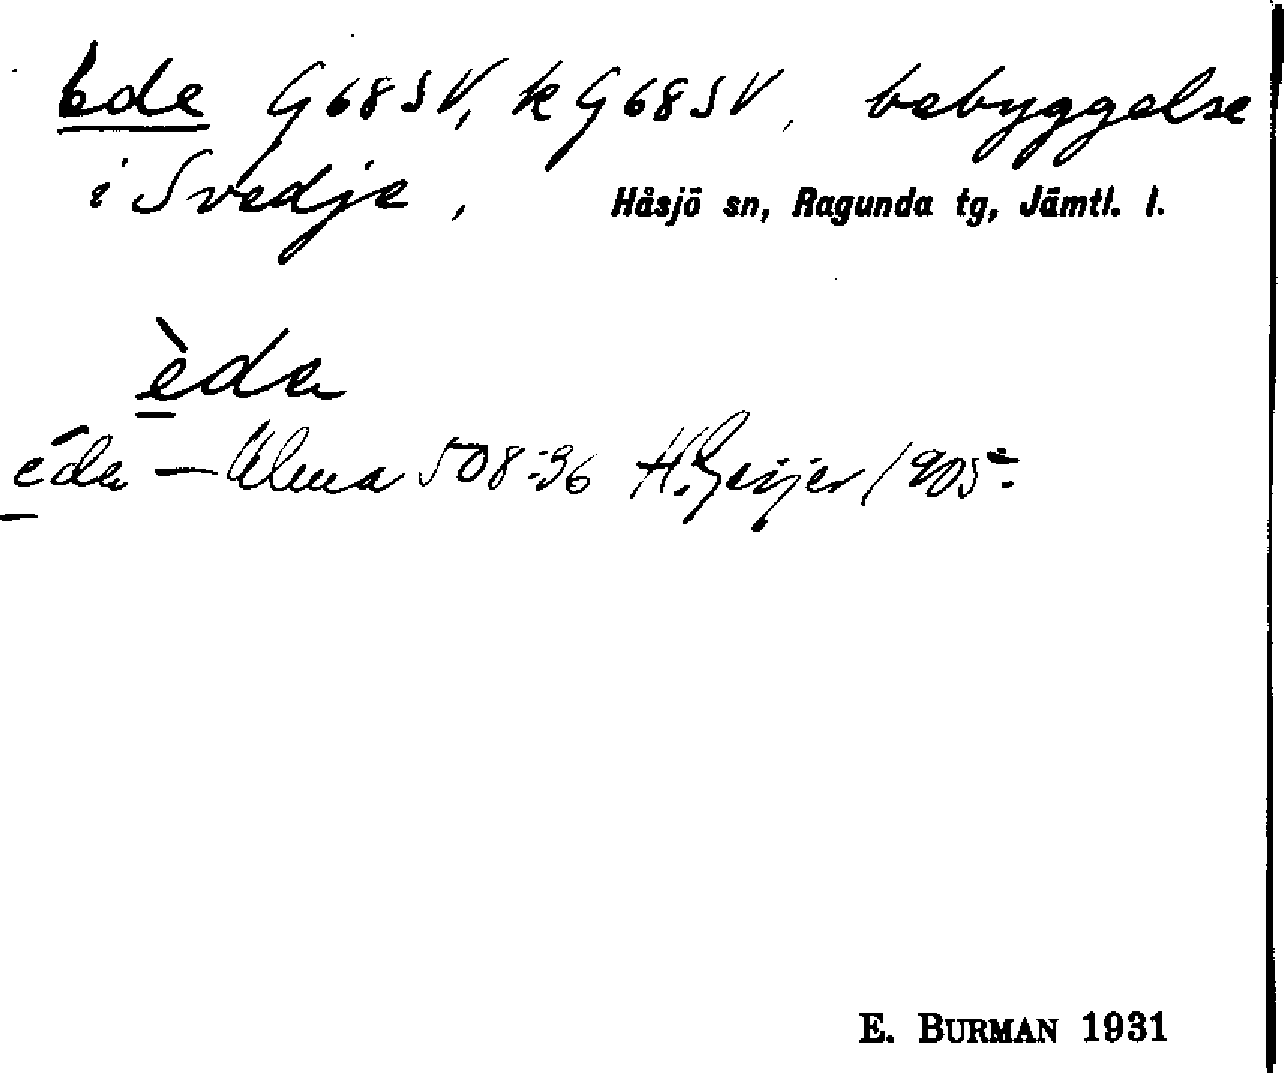 Ede G68SV, kG68SV, bebyggelse
i Svedje, Håsjö sn, Ragunda tg, Jämtl. l.
èda
éda — Ulma 508:36 H. Geijer 1905
E. BURMAN 1931